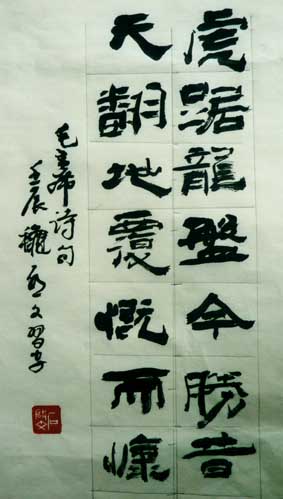 虎踞龍盤今勝昔
天翻地覆慨而慷
毛主席詩句
壬辰穐文習字